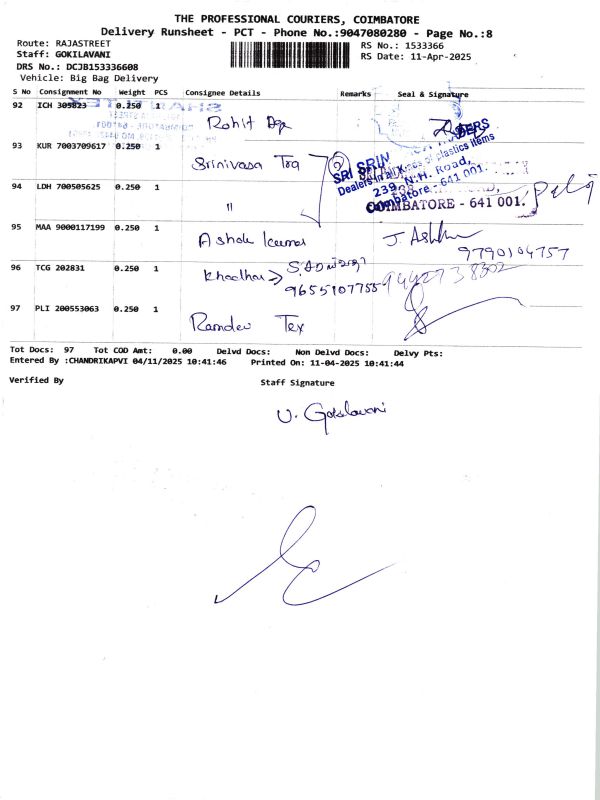 THE PROFESSIONAL COURIERS, COIMBATORE
Delivery Runsheet - PCT - Phone No.:9047080280 - Page No.:8
Route: RAJASTREET
Staff: GOKILAVANI
DRS No.: DCJB153336608
Vehicle: Big Bag Delivery
RS No.: 1533366
RS Date: 11-Apr-2025
S No Consignment No Weight PCS Consignee Details Remarks Seal & Signature
92 ICH 305823 0.250 1 Rohit
93 KUR 7003709617 0.250 1 Srinivasa Trq 2
SRI SRIN
Dealers in all Kinds of plastics items
239, N.H. Road,
Coimbatore - 641 001.
94 LDH 700505625 0.250 1 "
COIMBATORE - 641 001.
95 MAA 9000117199 0.250 1 Ashok Kumar J. Ashk
9790104757
96 TCG 202831 0.250 1 Khadhar→
9655107755 9442738302
97 PLI 200553063 0.250 1 Ramdev Tex
Tot Docs: 97 Tot COD Amt: 0.00 Delvd Docs: Non Delvd Docs: Delvy Pts:
Entered By :CHANDRIKAPVI 04/11/2025 10:41:46 Printed On: 11-04-2025 10:41:44
Verified By Staff Signature
U. Gokilavani